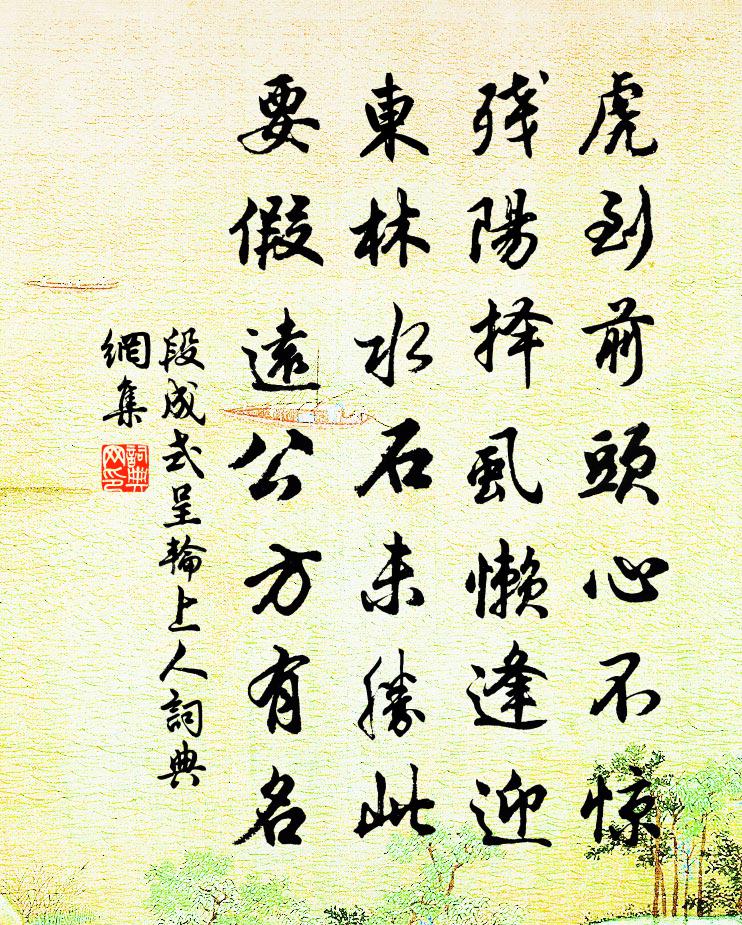 虎到前頭心不惊
残陽择虱懒逢迎
東林水石未勝此
要假遠公方有名
段成式呈輪上人詞典
網集
詞典
网印